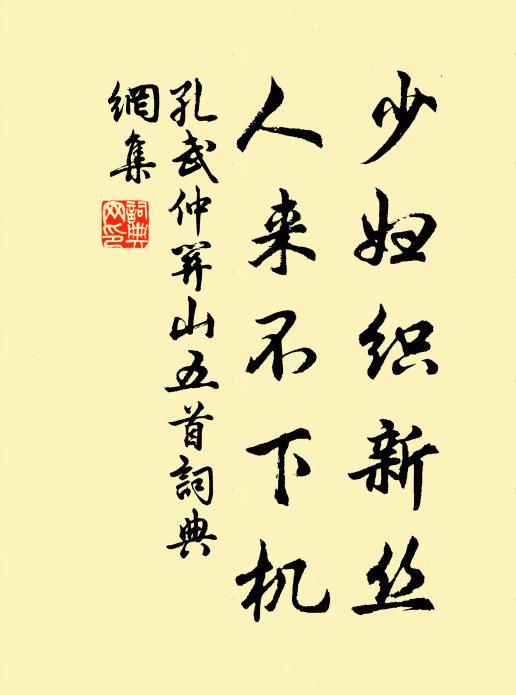 少妇织新丝
人来不下机
孔武仲羿山五首詞典
網集
詞典
网印